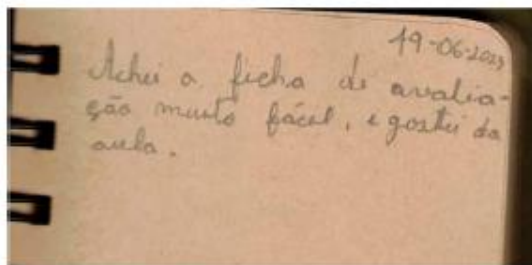 19-06-2023
Achei a ficha de avalia-
ção muito fácil, e gostei da
aula.